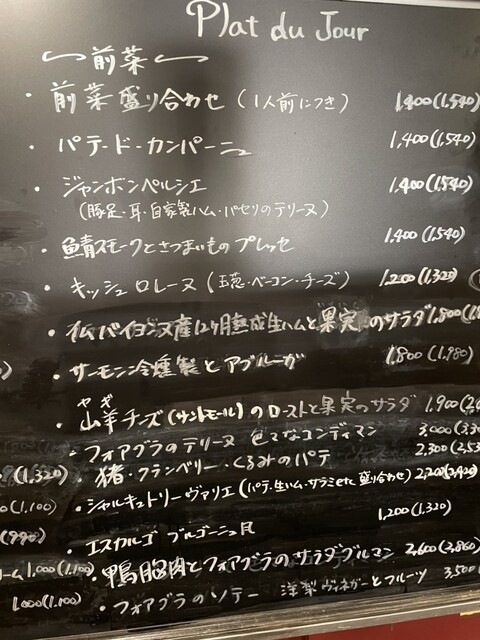 Plat du Jour
〜前菜〜
・前菜盛り合わせ (1人前につき) 1,400(1,540)
・パテ・ド・カンパーニュ 1,400(1,540)
・ジャンボンペルシエ 1,400(1,540)
(豚足・耳・自家製ハム・パセリのテリーヌ)
・鯖スモークとさつまいものプレッセ 1,400(1,540)
・キッシュロレーヌ (玉葱・ベーコン・チーズ) 1,200(1,320)
・仏バイヨンヌ産12ヶ月熟成生ハムと果実のサラダ 1,800
・サーモン冷燻製とアブルーガ 1,800(1,980)
ヤギ
・山羊チーズ(サントモール)のローストと果実のサラダ 1,900
・フォアグラのテリーヌ 色々なコンディマン 3,000
・猪・クランベリー・くるみのパテ 2,300
(1,320)
・シャルキュトリーヴァリエ(パテ・生ハム・サラミetc盛り合わせ) 2,200
(1,100)
・エスカルゴ ブルゴーニュ風 1,200(1,320)
(990)
・鴨胸肉とフォアグラのサラダグルマン 2,600(2,860)
ーム 1,000(1,100)
・フォアグラのソテー 洋梨ヴィネガーとフルーツ 3,500
1,000(1,100)